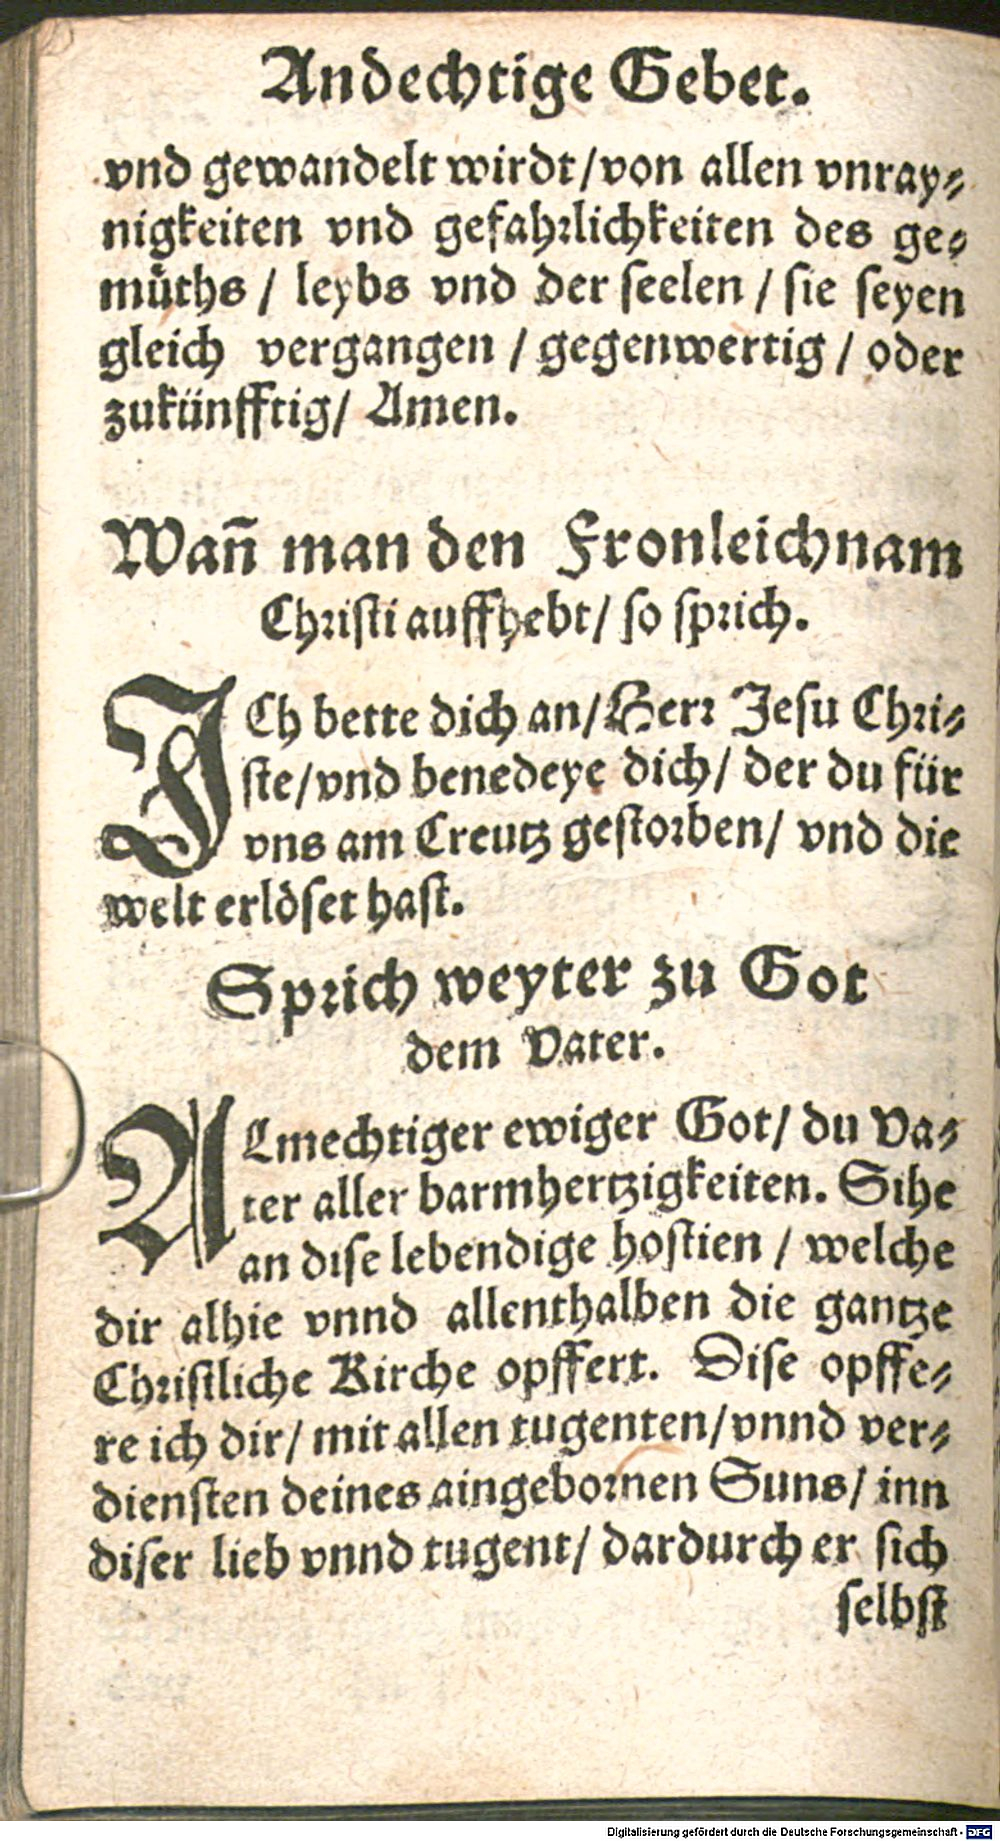 Andechtige Gebet.
vnd gewandelt wirdt/von allen vnray⸗
nigkeiten vnd gefahrlichkeiten des ge⸗
muͤths / leybs vnd der seelen / sie seyen
gleich vergangen / gegenwertig / oder
zukünfftig/ Amen.
Wañ man den Fronleichnam
Christi auffhebt/ so sprich.
ICh bette dich an/Herr Jesu Chri⸗
ste/vnd benedeye dich/ der du für
vns am Creutz gestorben/ vnd die
welt erlöset hast.
Sprich weyter zu Got
dem Vater.
ALmechtiger ewiger Got/ du Va⸗
ter aller barmhertzigkeiten. Sihe
an dise lebendige hostien / welche
dir alhie vnnd allenthalben die gantze
Christliche Kirche opffert. Dise opffe⸗
re ich dir/ mit allen tugenten/vnnd ver⸗
diensten deines aingebornen Suns/ inn
diser lieb vnnd tugent/ dardurch er sich
selbst
Digitalisierung gefördert durch die Deutsche Forschungsgemeinschaft - DFG